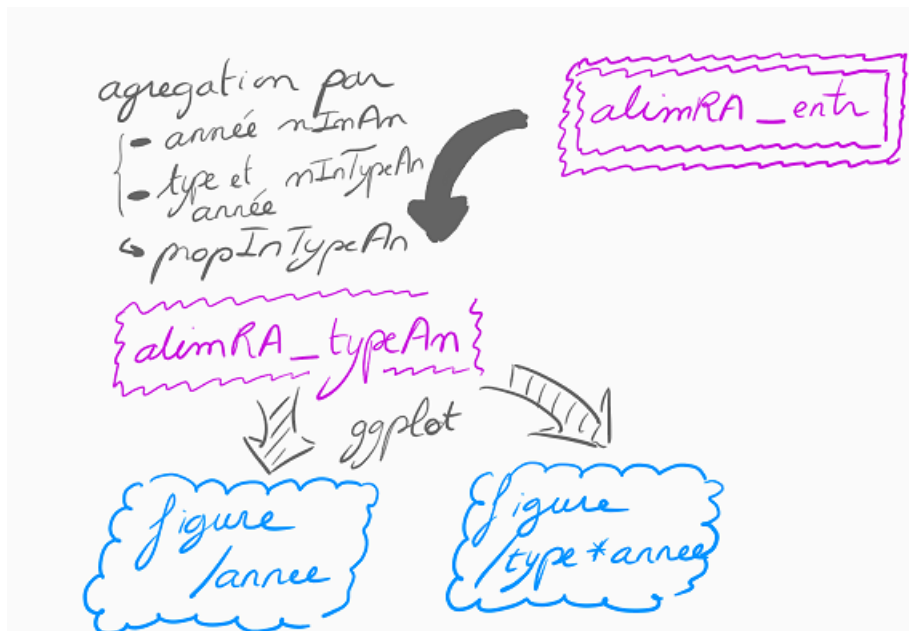 agregation par
- année nInAn
- type et nInTypeAn
année
↳ propInTypeAn
alimRA_entr
alimRA_typeAn
ggplot
figure
/annee
figure
/type*annee